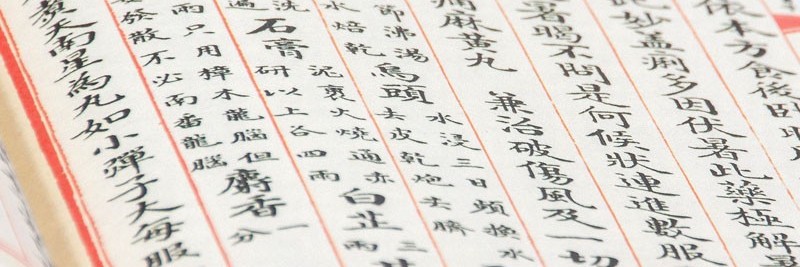 依本方食後臥
此妙蓋多因伏暑此藥極解
暑暍不問是何候狀連進數服
麻黃丸 兼治破傷風及一切
節沸湯
水焙乾
烏頭
水浸三日頻換水
去皮乾炮去臍
洗
遍
石膏
泥裹火燒通赤
研以上各四兩
白芷
兩只用樟木龍腦但
散不必南番龍腦
麝香
一
分
天南星為丸如小彈子大每服